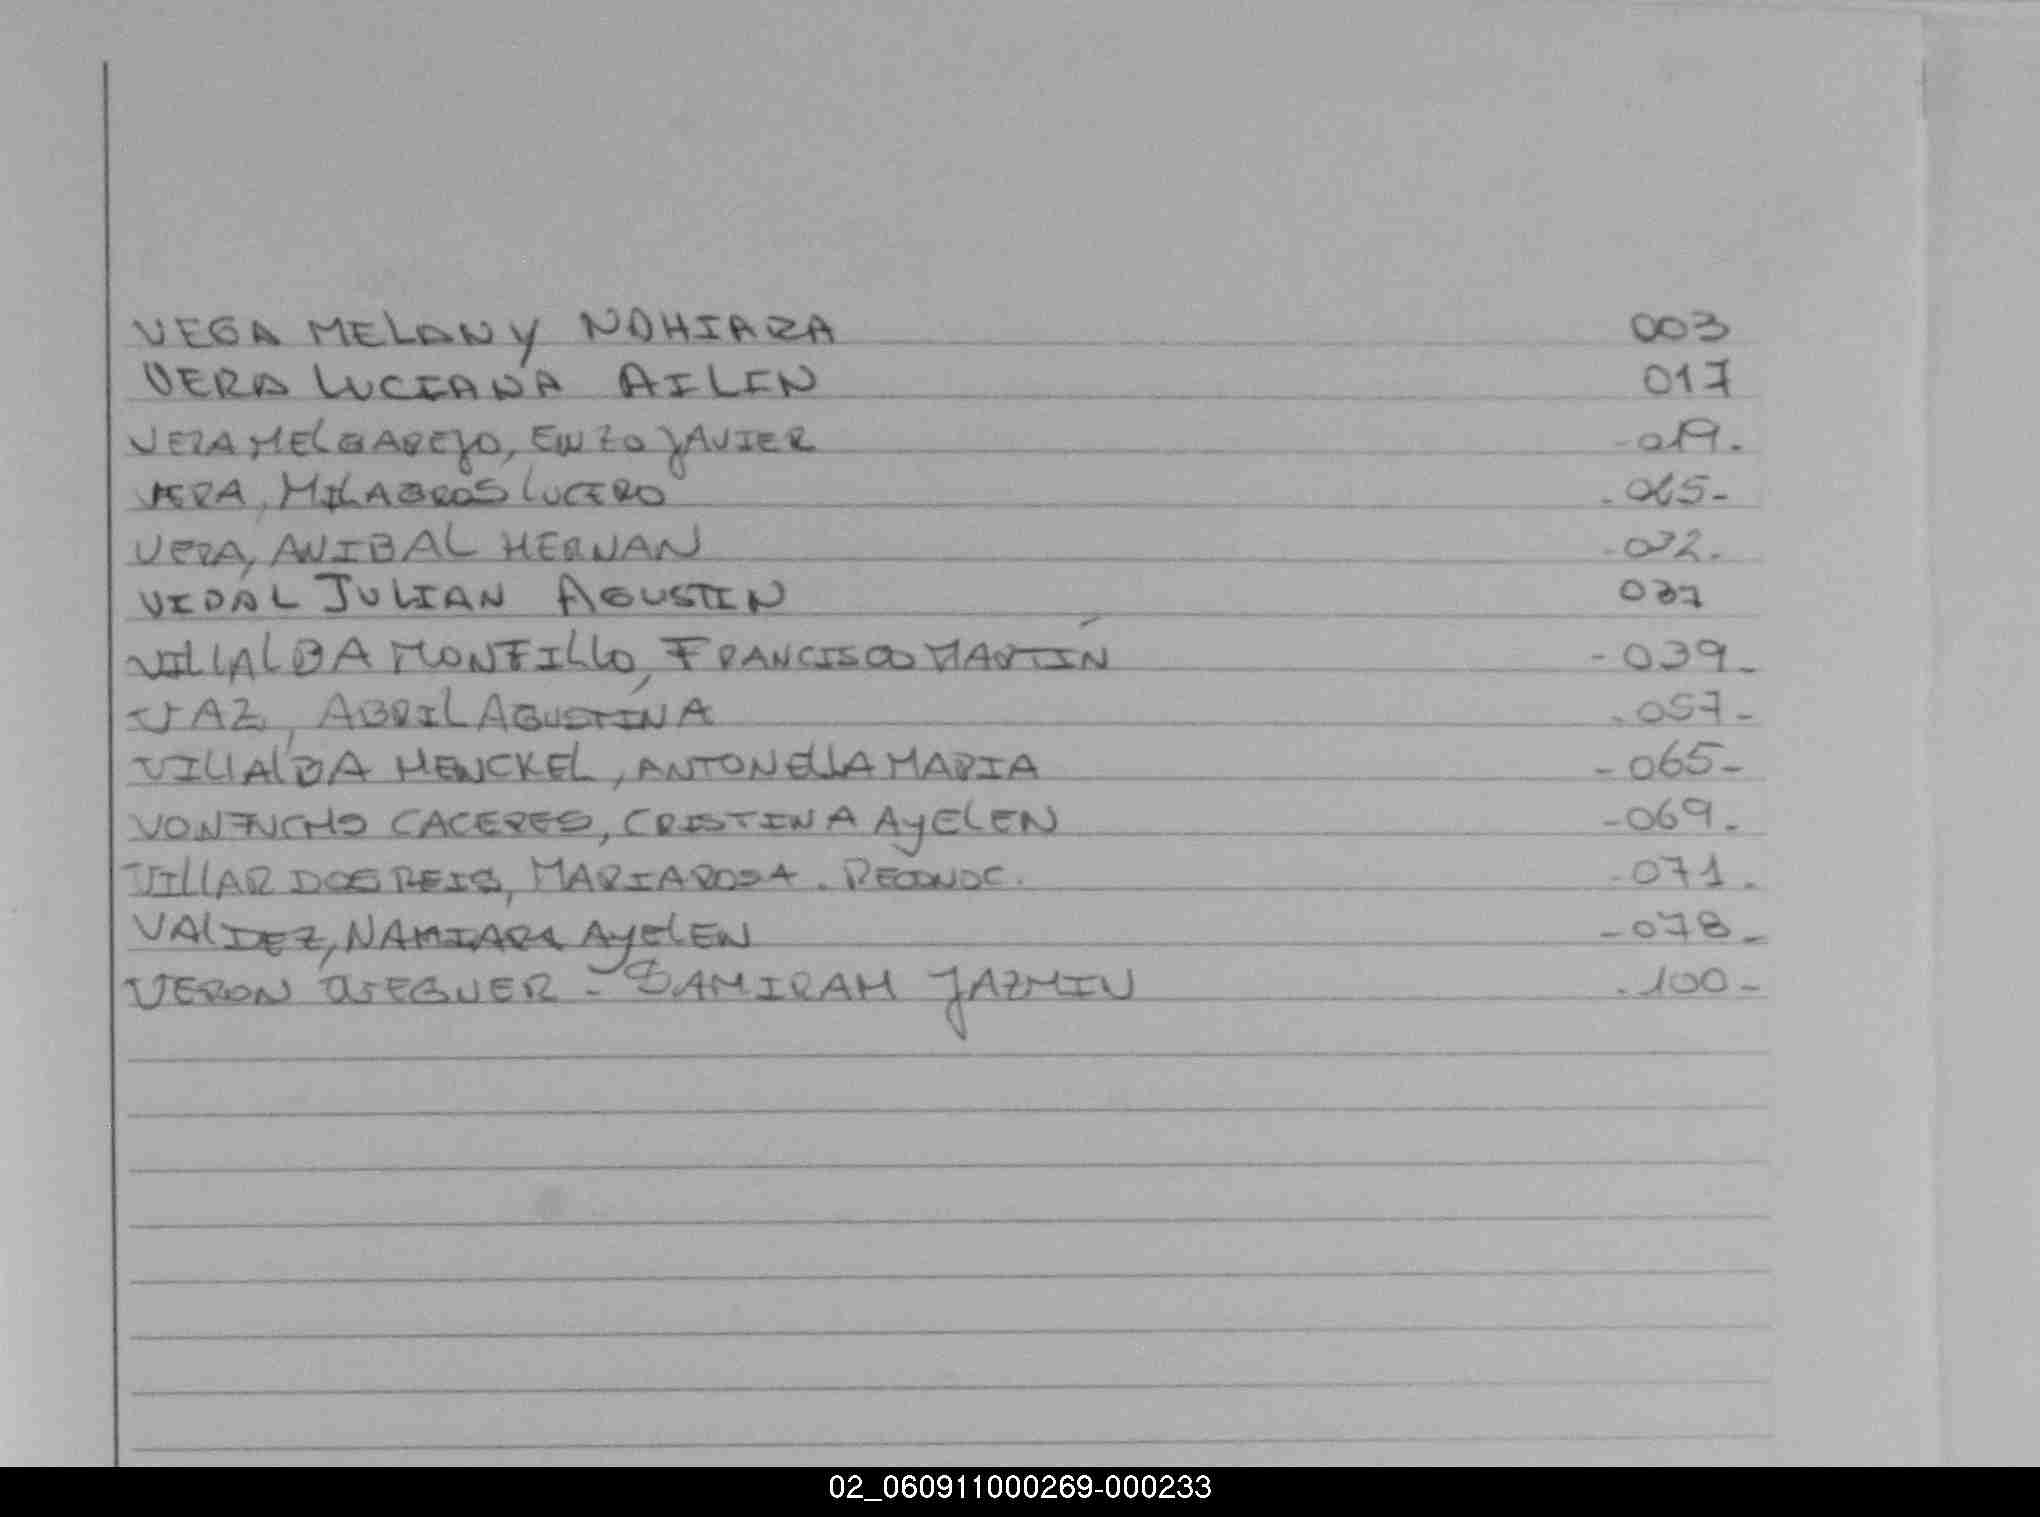 VEGA MELANY NOHIARA 003
VERA LUCIANA AILEN 017
VERA MELGAREJO, ENZO JAVIER -019.
VERA, MILAGROS LUCERO
VERA, ANIBAL HERNAN -032.
VIDAL JULIAN AGUSTIN 037
VILLALBA MONFILLO, FRANCISCO MARTÍN -039-
VAZ, ABRIL AGUSTINA .057-
VILLALBA HENCKEL, ANTONELLA MARIA -065-
CACERES, CRISTINA AYELEN -069.
VILLAR DOS REIS, MARIA ROSA. RECONOC. -071.
VALDEZ, NAHIARA AYELEN -078-
VERON - SAMIRAH JAZMIN .100-
02_060911000269-000233